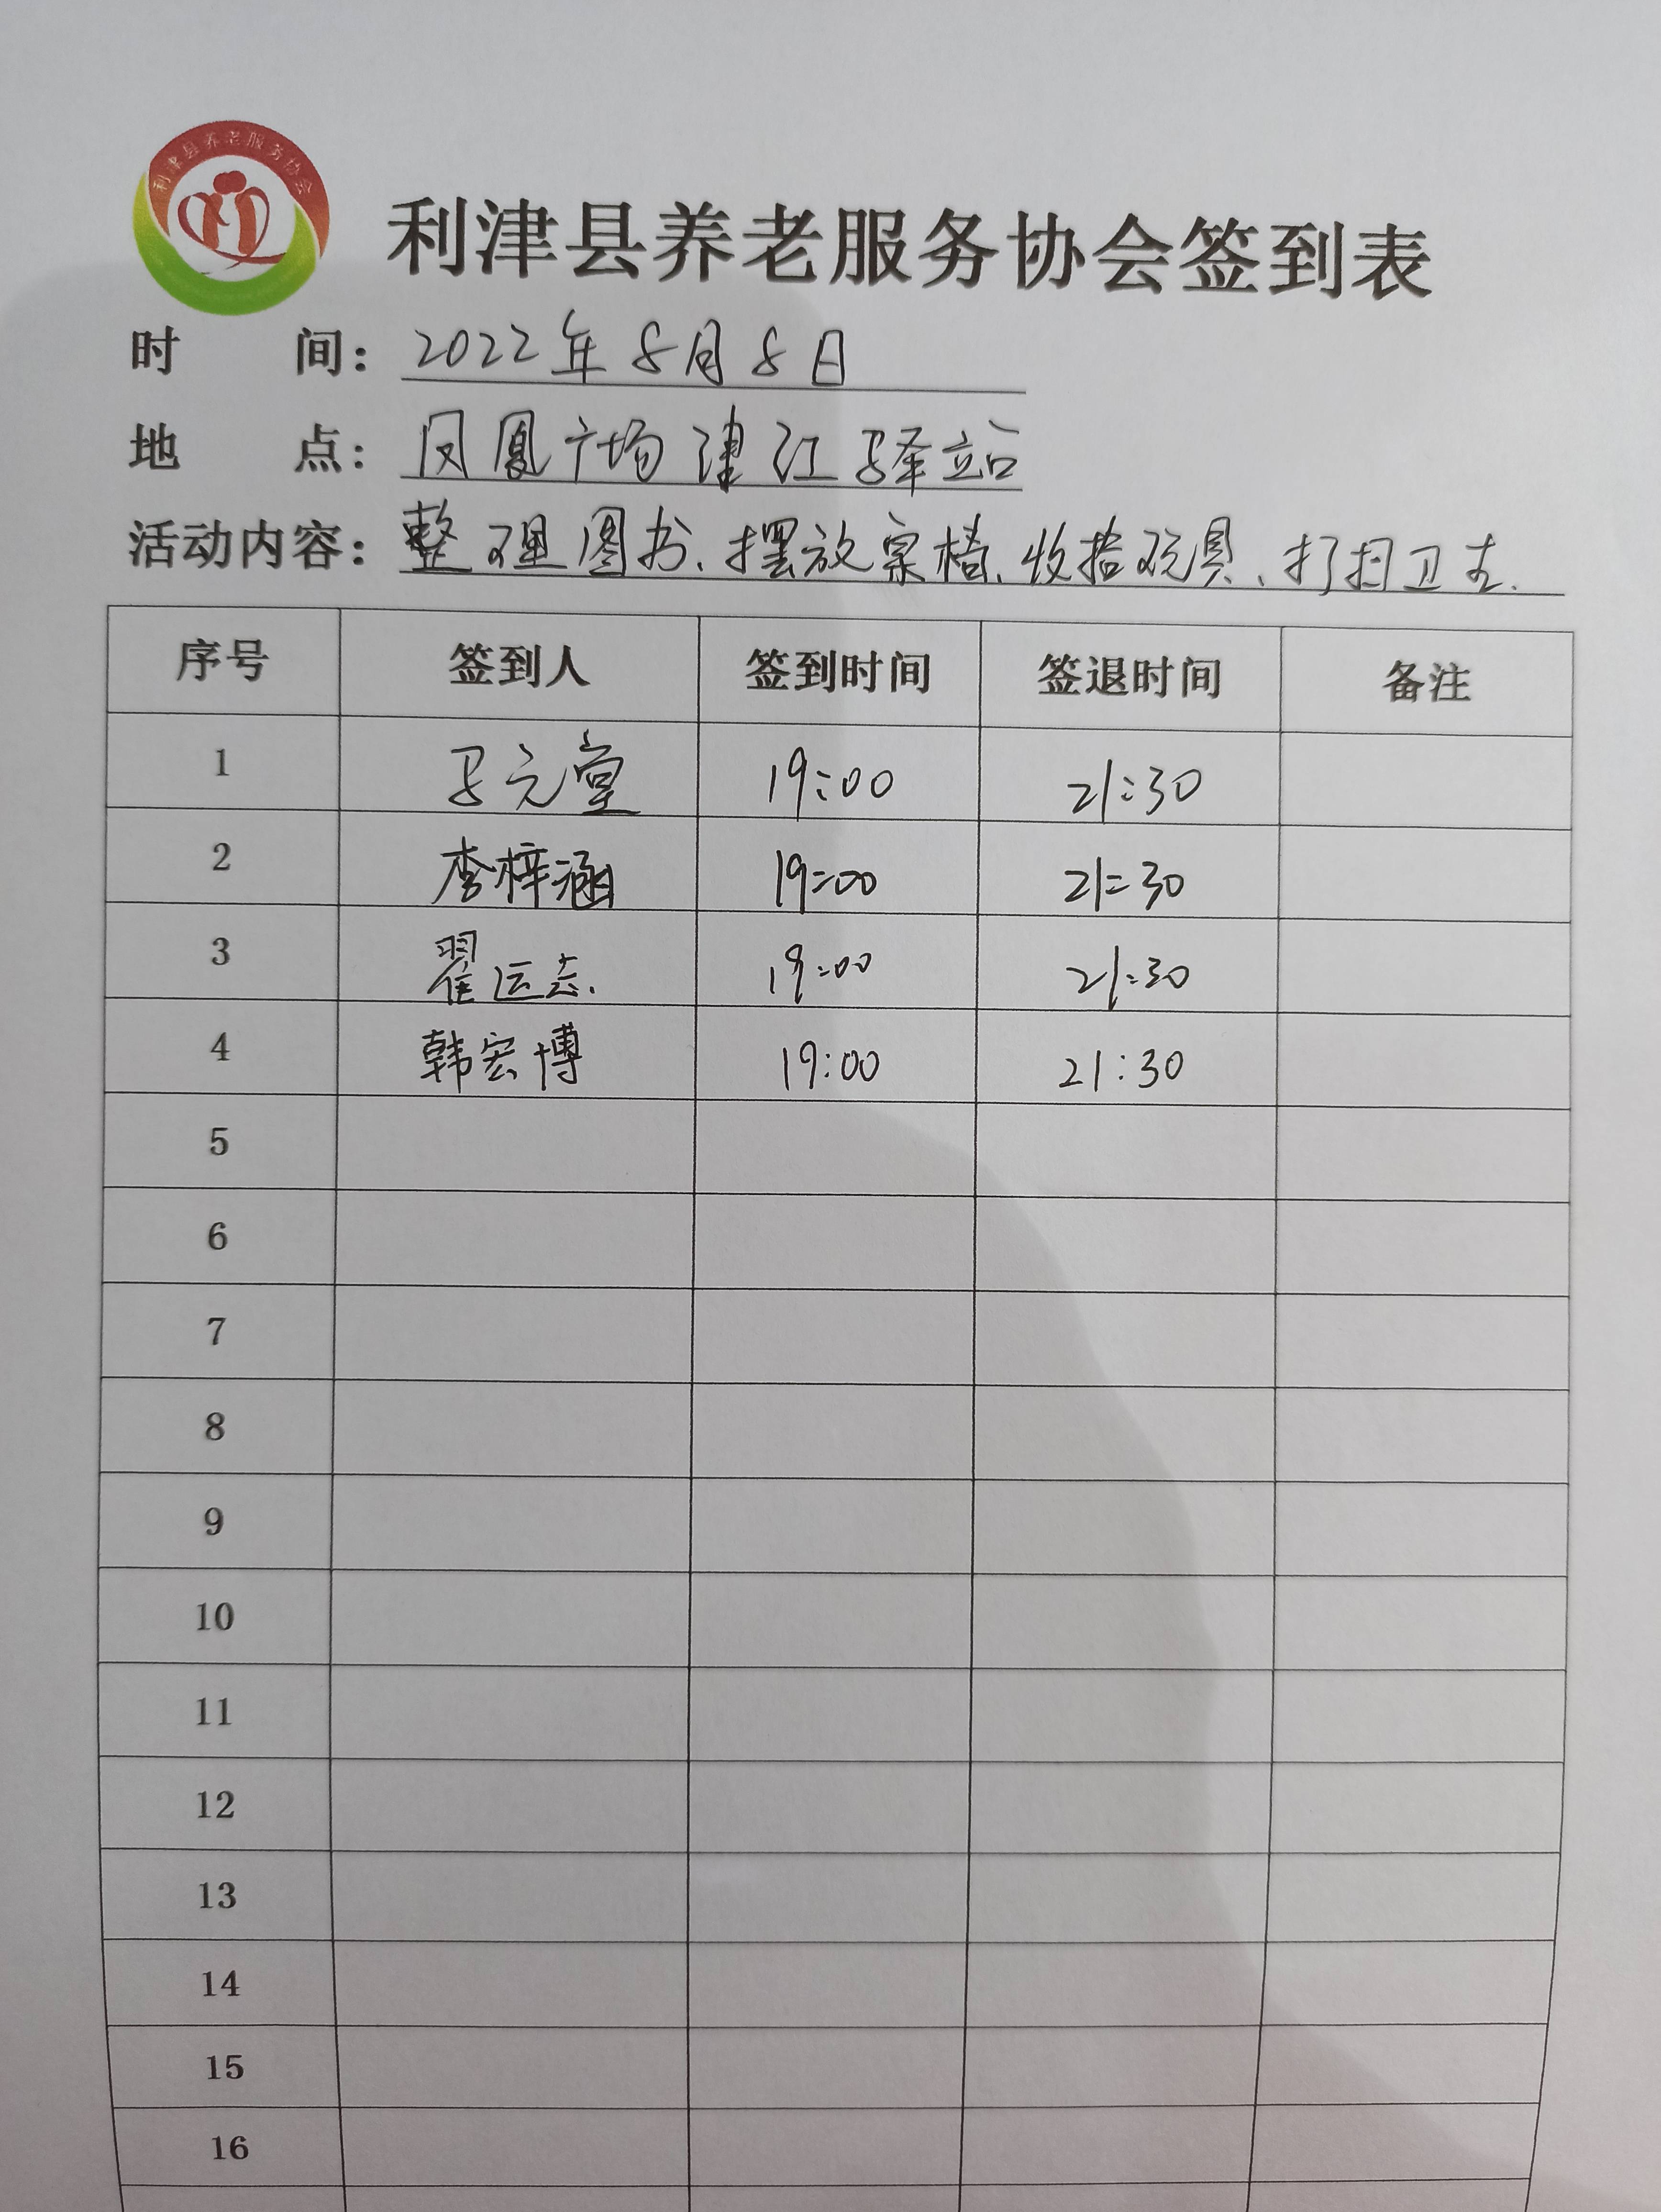 利津县养老服务协会
利津县养老服务协会签到表
时 间：2022年8月8日
地 点：凤凰广场津江驿站
活动内容：整理图书、摆放桌椅、收拾玩具、打扫卫生.
序号 签到人 签到时间 签退时间 备注
1 马元堂 19:00 21:30
2 李梓涵 19:00 21:30
3 翟运志. 19:00 21:30
4 韩宏博 19:00 21:30
5
6
7
8
9
10
11
12
13
14
15
16